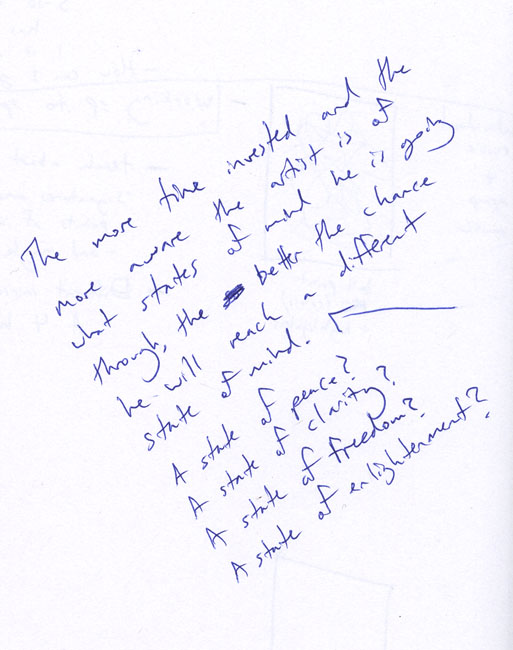 The more time invested and the
more aware the artist is of
what states of mind he is going
through, the better the chance
he will reach a different
state of mind.
A state of peace?
A state of clarity?
A state of freedom?
A state of enlightenment?